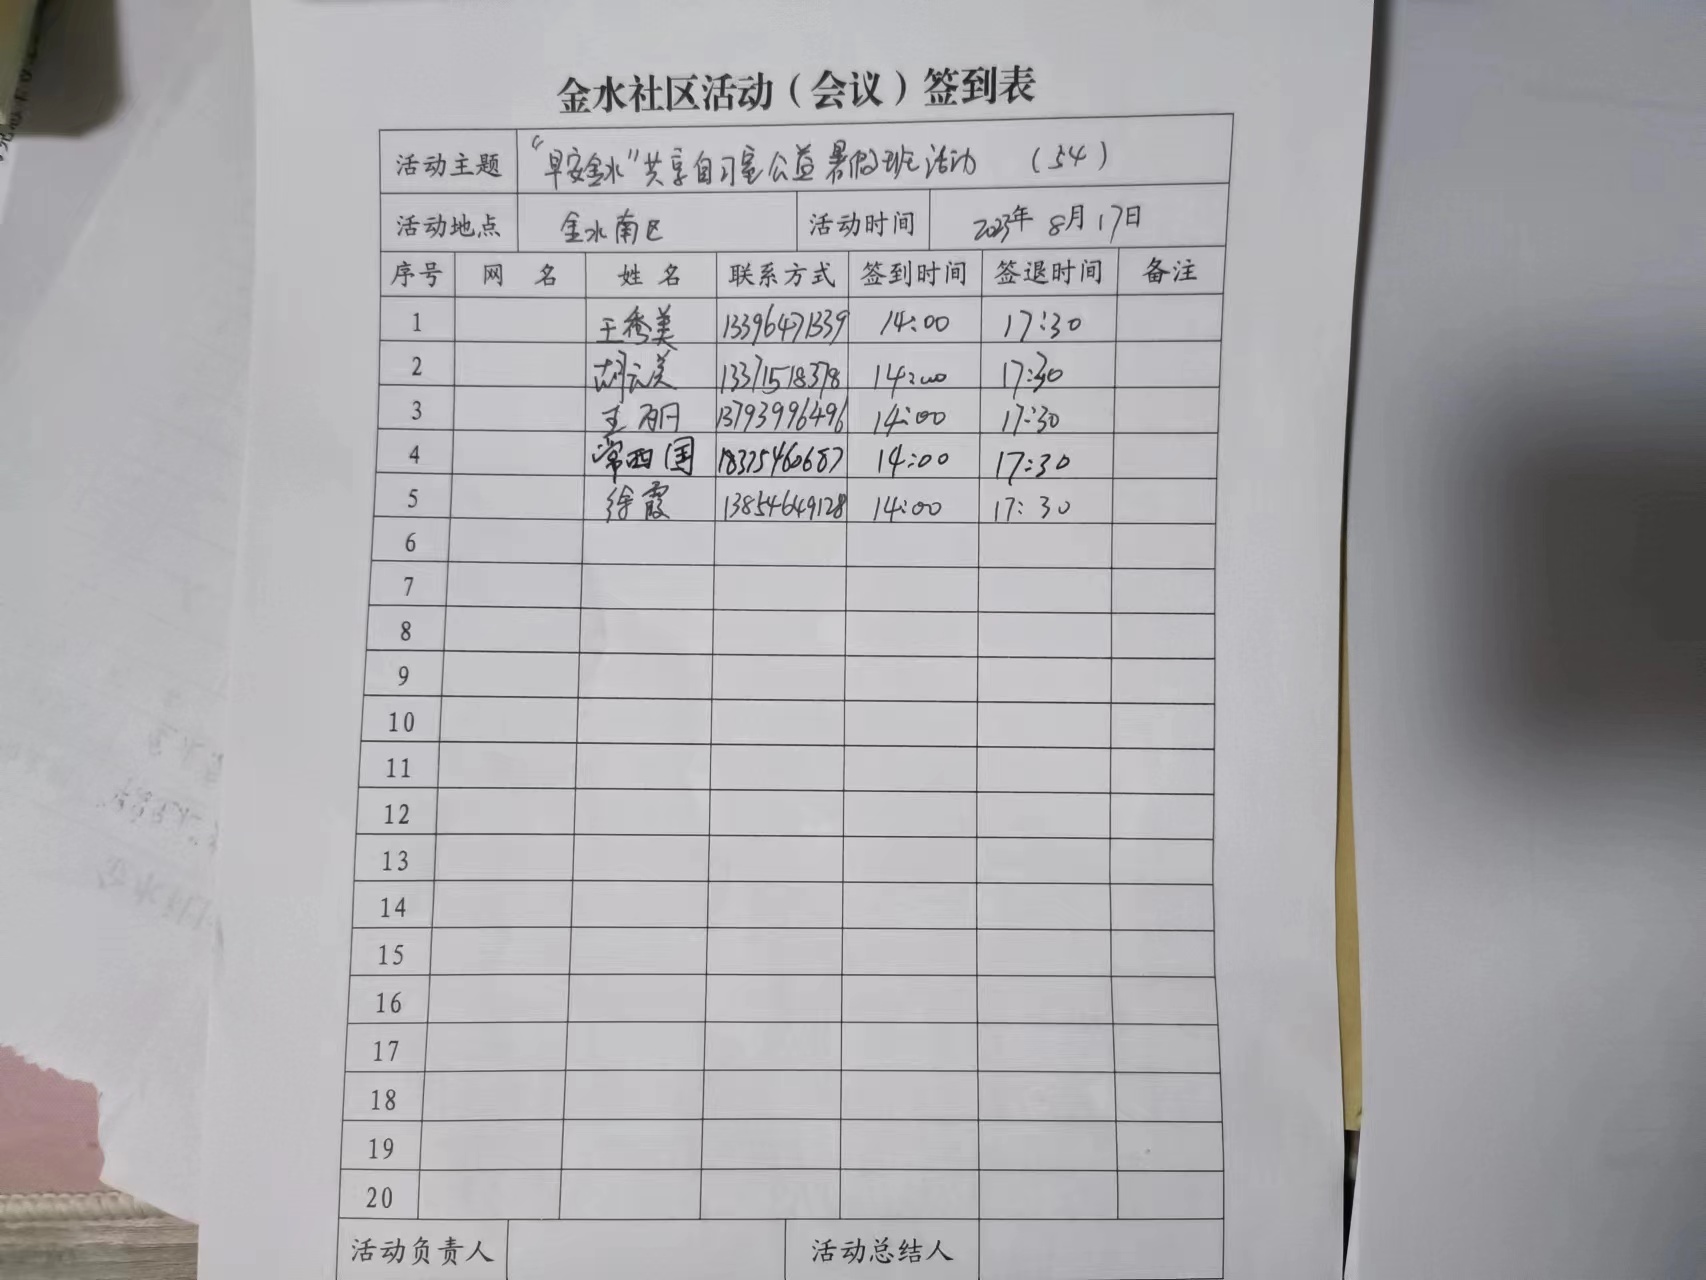 金水社区活动（会议）签到表
活动主题 “早安金水”共享自习室公益暑假班活动 （54）
活动地点 金水南区 活动时间 2023年8月17日
序号 网名 姓名 联系方式 签到时间 签退时间 备注
1 王秀美 13396471339 14:00 17:30
2 胡云美 13371518378 14:00 17:30
3 王丽 13793996496 14:00 17:30
4 常西国 18375460687 14:00 17:30
5 徐霞 13854649128 14:00 17:30
6
7
8
9
10
11
12
13
14
15
16
17
18
19
20
活动负责人 活动总结人